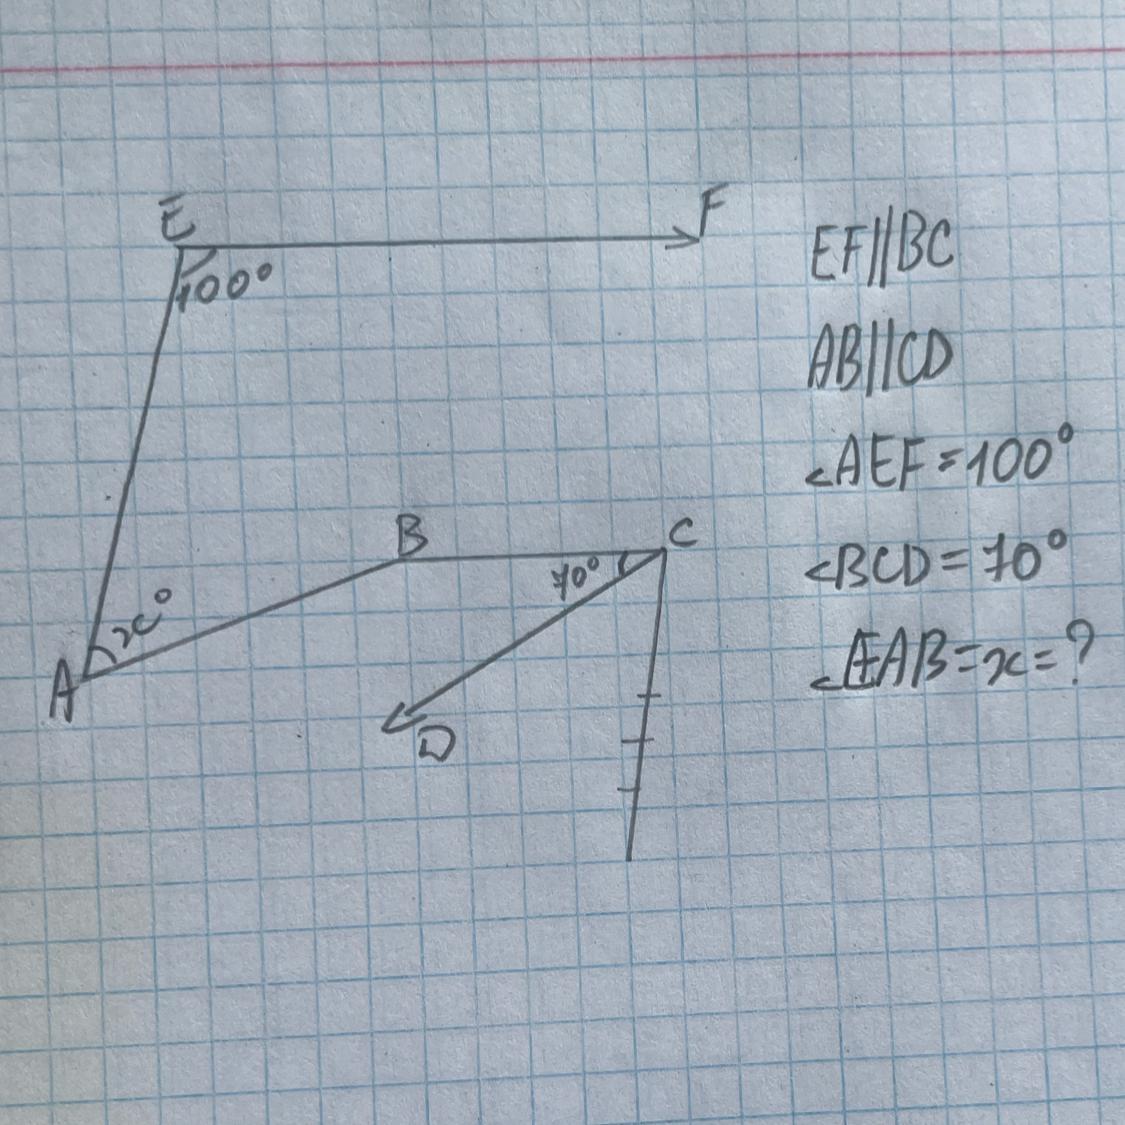 E
F
100°
EF||BC
AB||CD
∠AEF=100°
B
C
70°
∠BCD=70°
x°
A
D
∠EAB=x=?